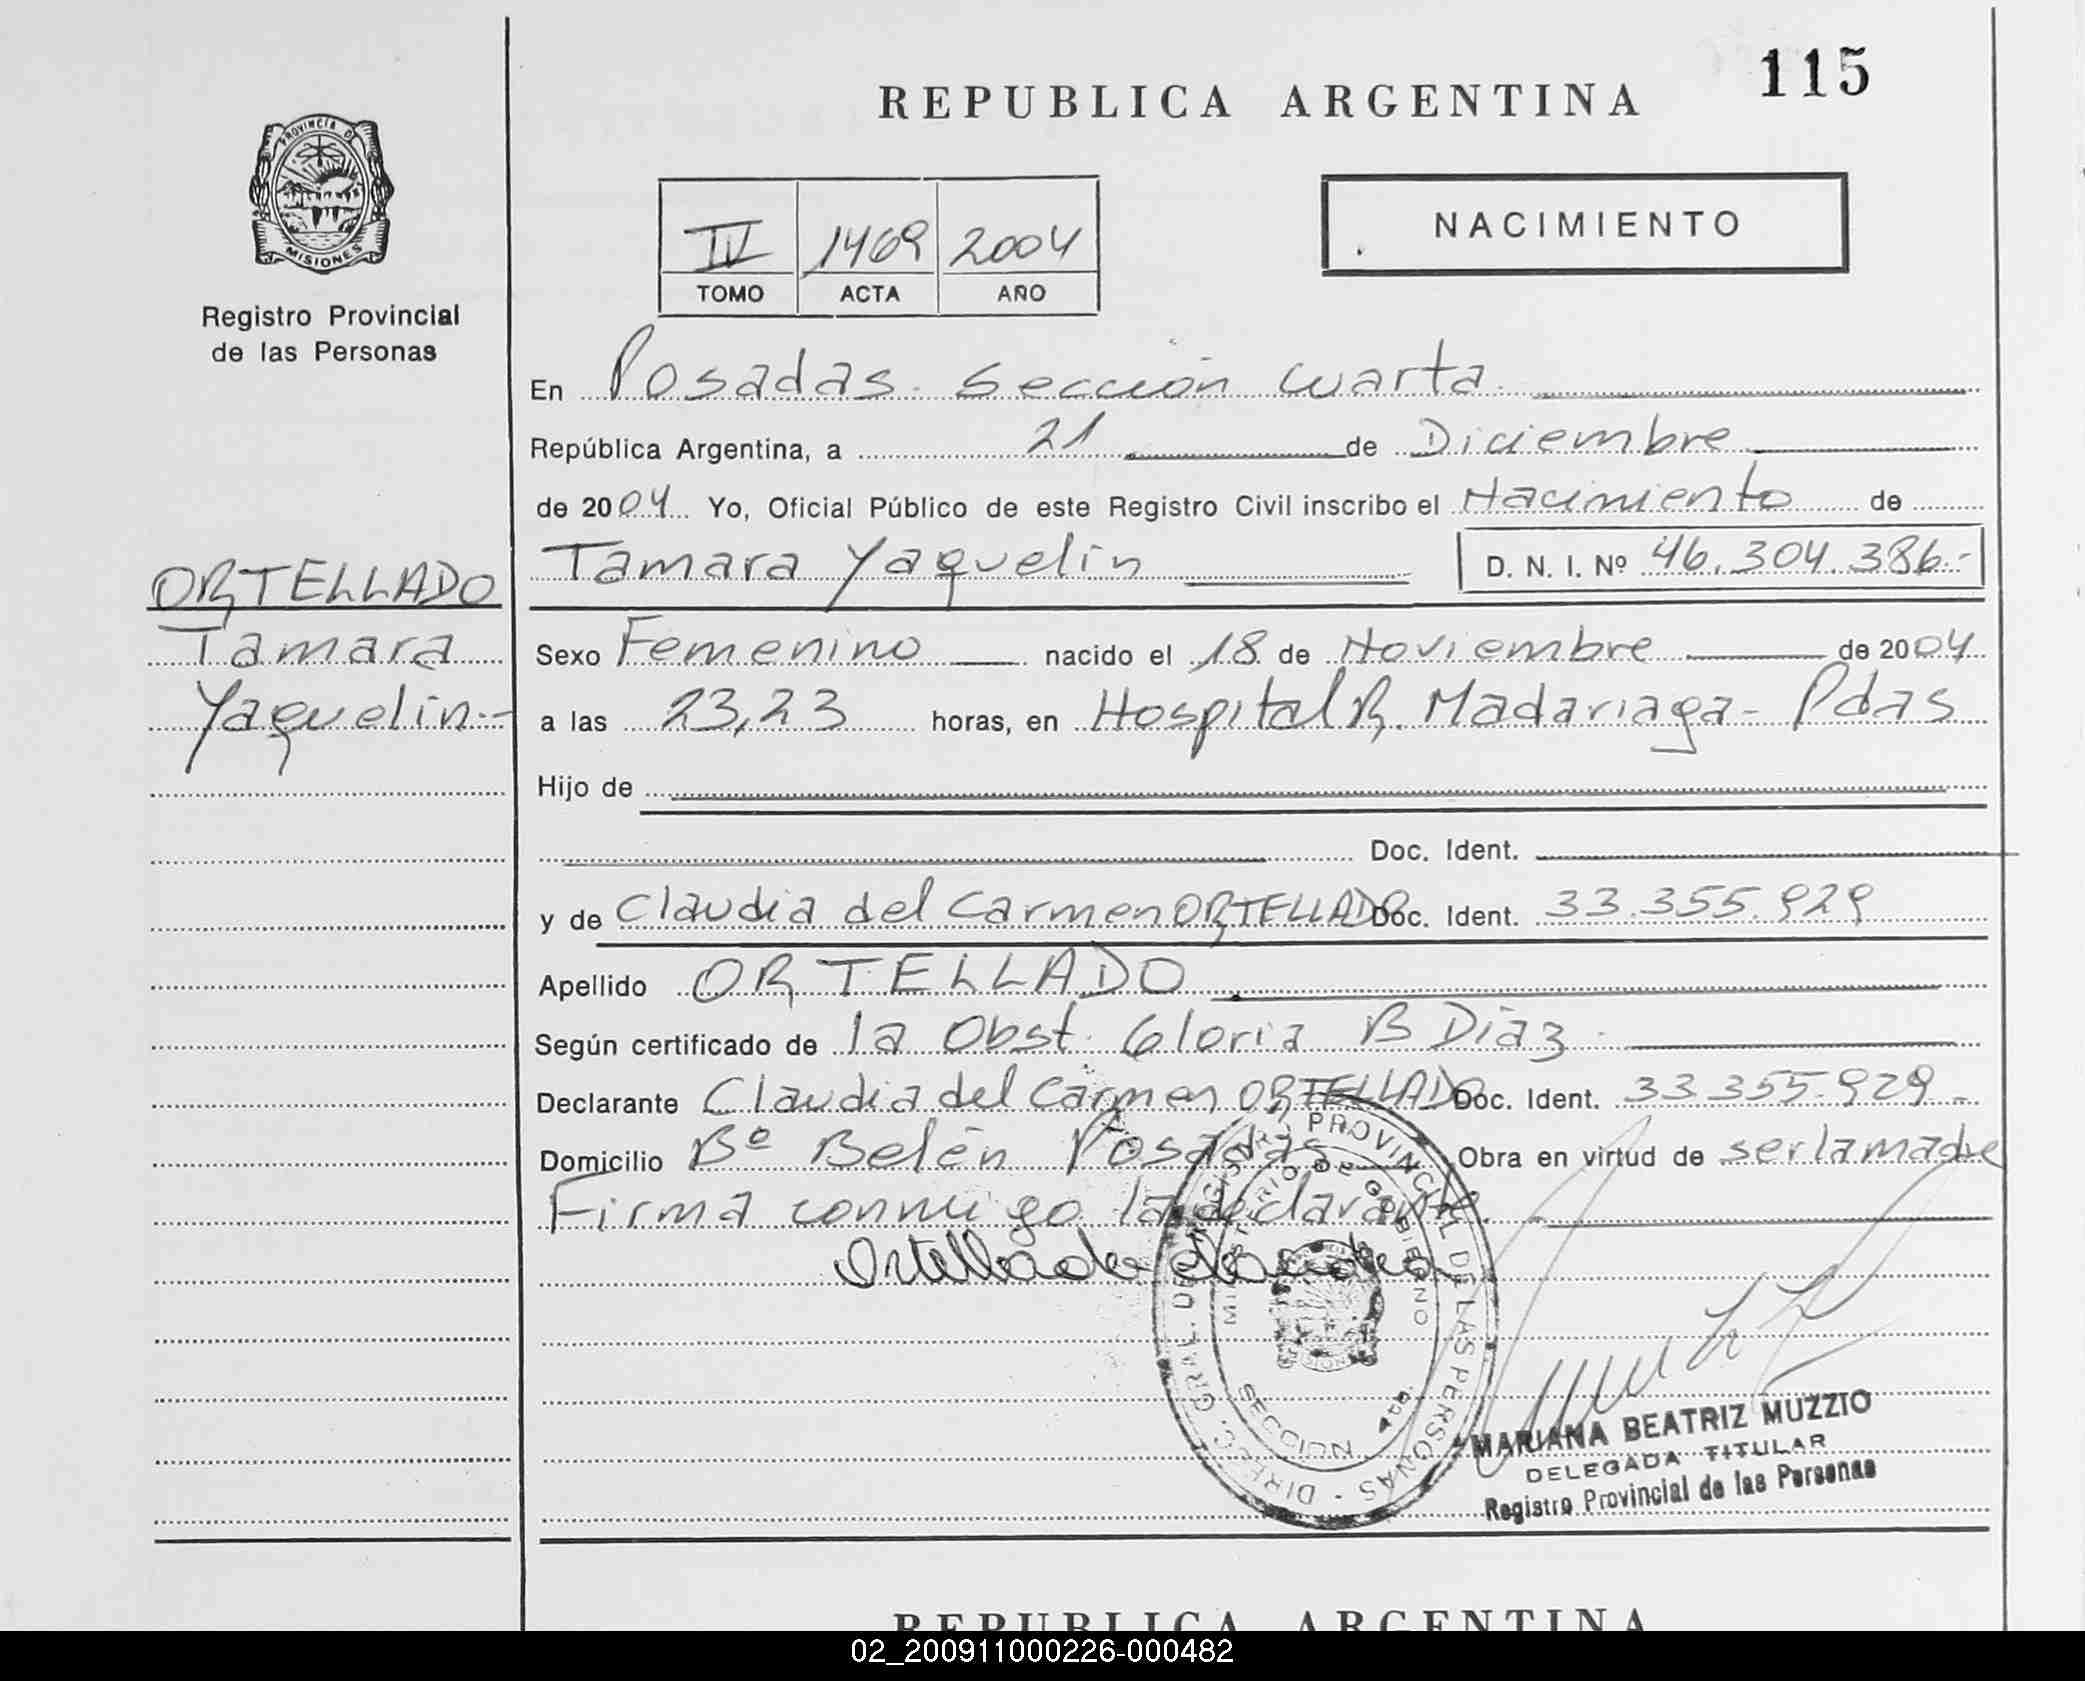 REPUBLICA ARGENTINA
115
PROVINCIA DE
MISIONES
Registro Provincial
de las Personas
IV 1469 2004
TOMO ACTA AÑO
NACIMIENTO
En Posadas. Sección cuarta
República Argentina, a 21 de Diciembre
de 2004 Yo, Oficial Público de este Registro Civil inscribo el Nacimiento de
Tamara Yaquelin D. N. I. Nº 46.304.386.-
ORTELLADO
Tamara
Yaquelin.-
Sexo Femenino nacido el 18 de Noviembre de 2004
a las 23,23 horas, en Hospital R. Madariaga - Pdas
Hijo de
Doc. Ident.
y de Claudia del Carmen ORTELLADO Doc. Ident. 33.355.929
Apellido ORTELLADO
Según certificado de la Obst. Gloria B Diaz
Declarante Claudia del Carmen ORTELLADO Doc. Ident. 33.355.929.-
Domicilio Bº Belén Posadas Obra en virtud de ser la madre
Firma conmigo la declarante.
Ortellado claudia
DIREC. GRAL. DEL REGISTRO PROVINCIAL DE LAS PERSONAS
MINISTERIO DE GOBIERNO
SECCION 4ta.
MARIANA BEATRIZ MUZZIO
DELEGADA TITULAR
Registro Provincial de las Personas
REPUBLICA ARGENTINA
02_200911000226-000482